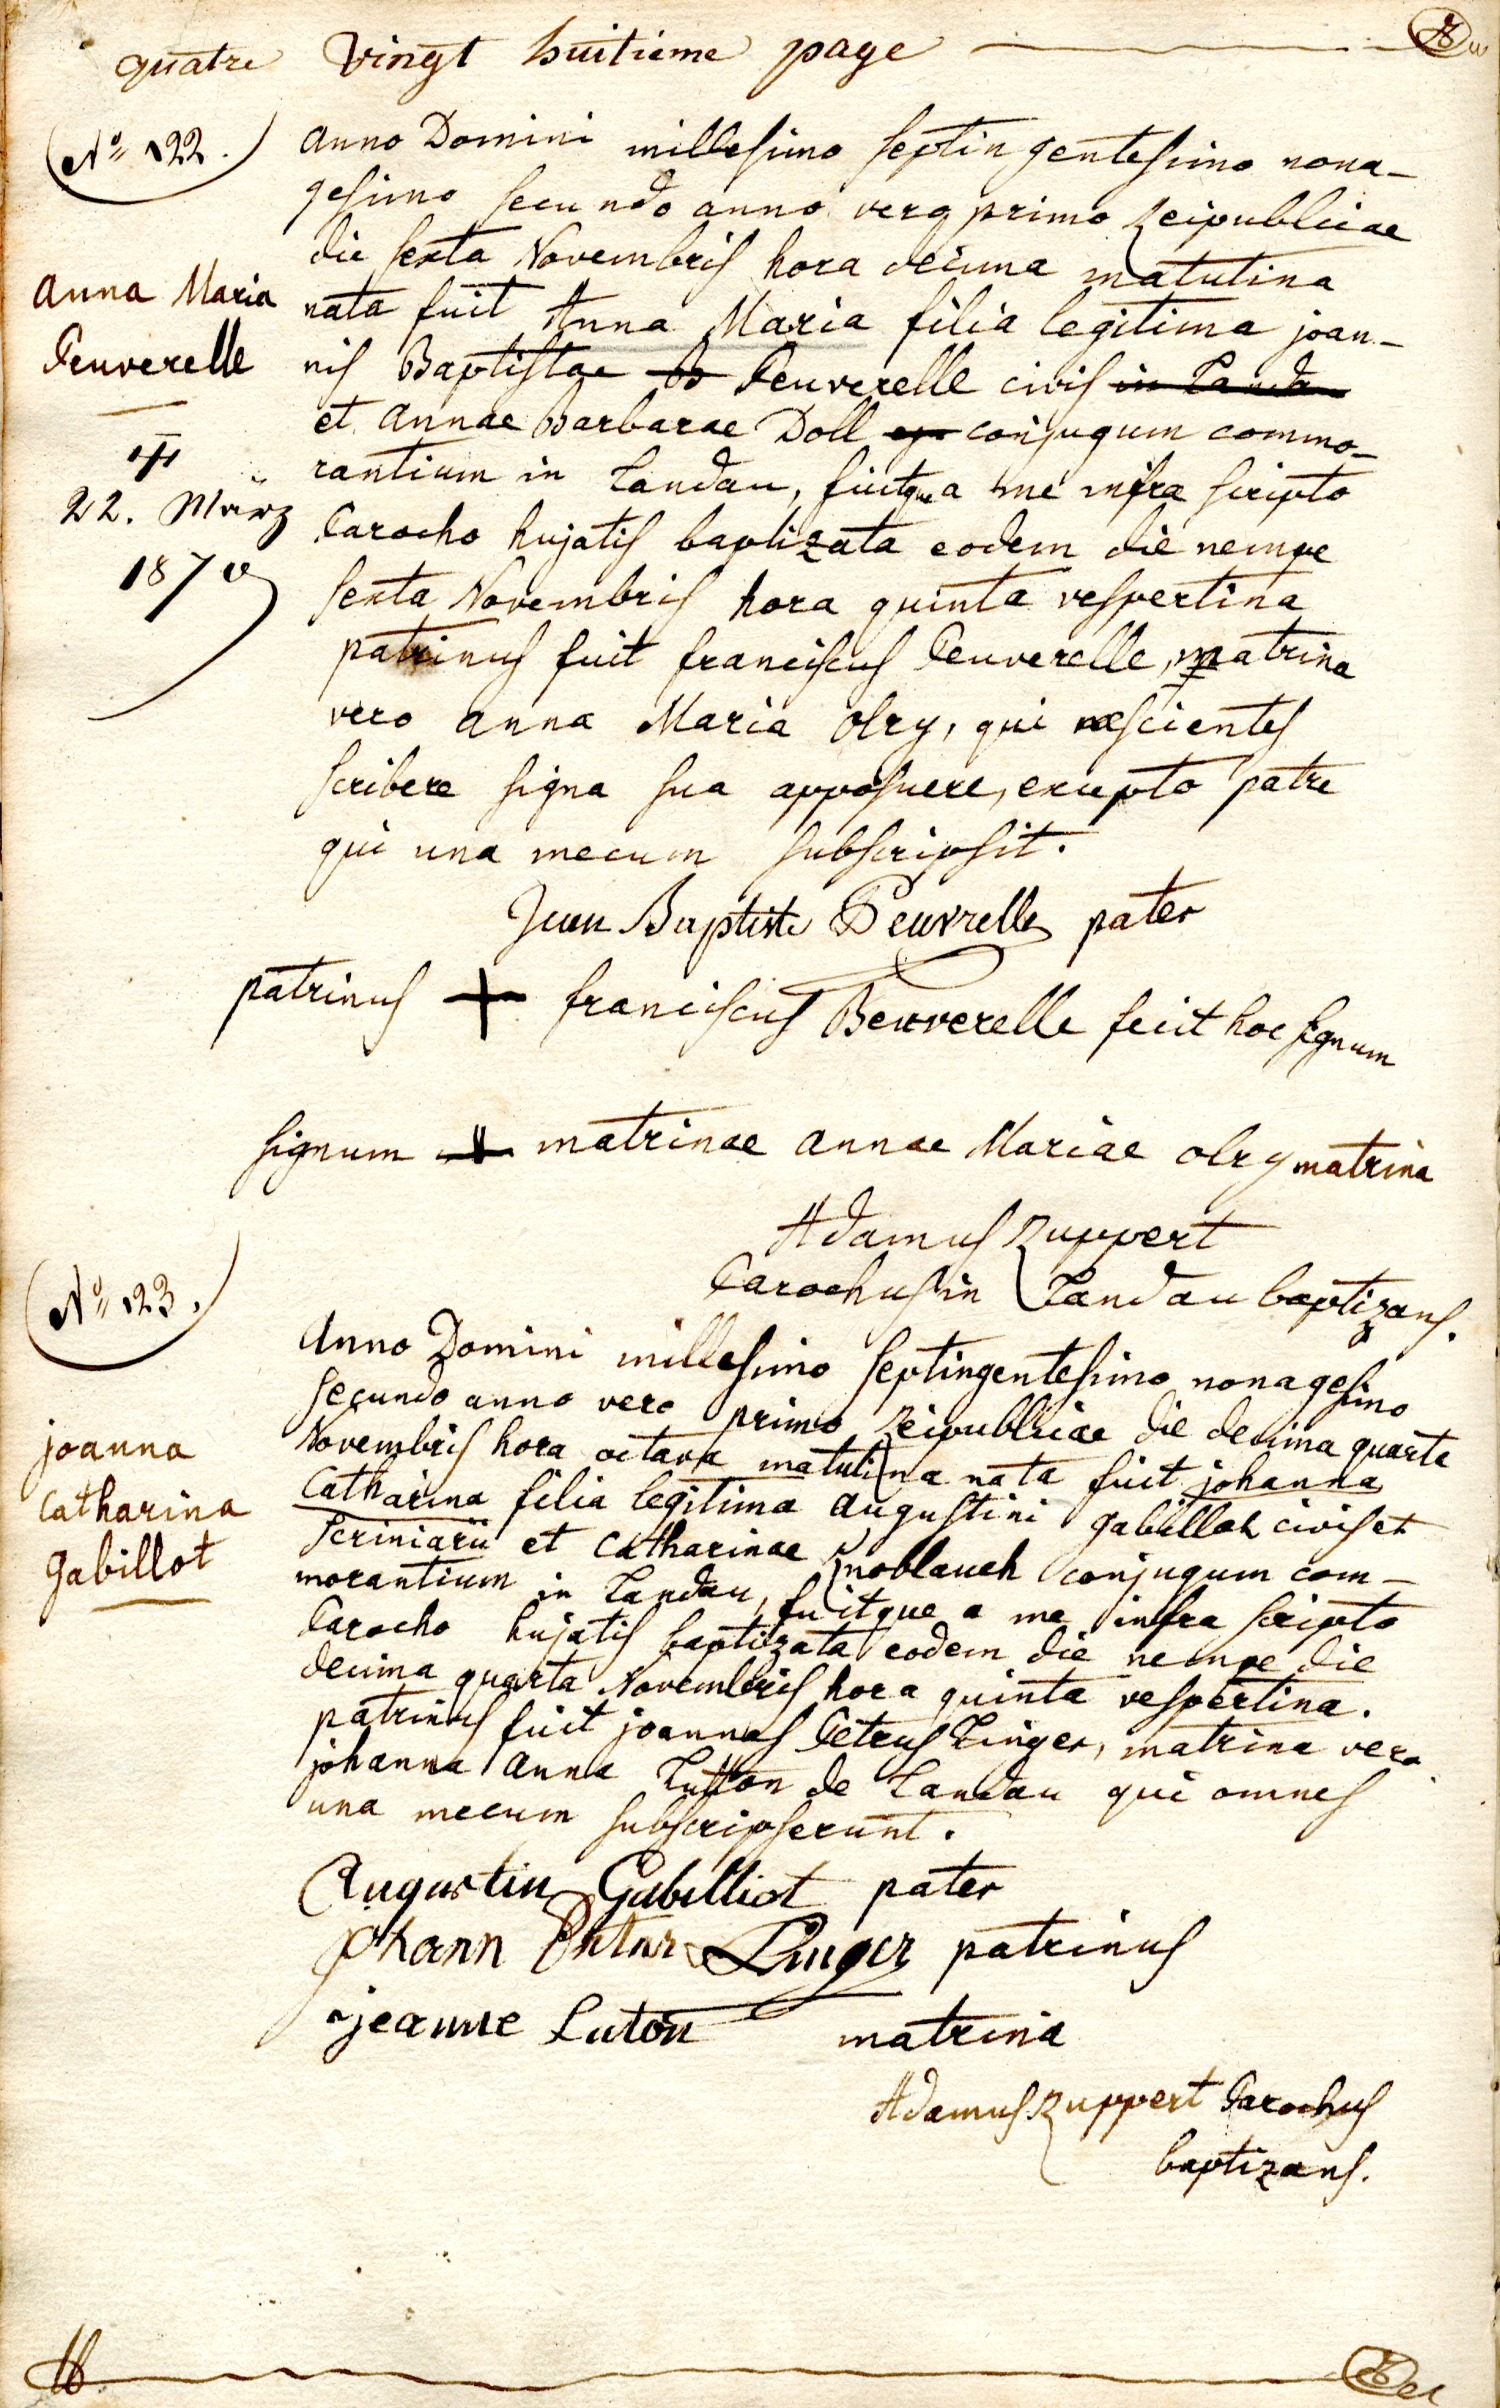 quatre Vingt huitieme page
N° 122.
anno Domini millesimo septingentesimo nona-
gesimo secundo anno vero primo Reipublicae
die sexta Novembris hora decima matutina
Anna Maria
Peuverelle
22. März
1870
nata fuit Anna Maria filia legitima joan-
nis Baptistae Peuverelle civis in Landau
et annae Barbarae Doll conjugum commo-
rantium in Landau, fuitque a me infra scripto
Parocho hujatis baptizata eodem die nempe
sexta Novembris hora quinta vespertina
patrinus fuit franciscus Peuverelle, matrina
vero anna Maria olry, qui nescientes
scribere signa sua apposuere, excepto patre
qui una mecum subscripsit.
Jean Baptiste Peuvrelle pater
patrinus + franciscus Beuverelle fecit hoc signum
signum + matrinae annae Mariae olry matrina
Adamus Ruppert
Parochus in Landau baptizans.
N° 123.
Anno Domini millesimo septingentesimo nonagesimo
secundo anno vero primo Reipublicae die decima quarta
Novembris hora octava matutina nata fuit johanna
joanna
catharina
gabillot
Catharina filia legitima augustini gabillot civis et
scriniarii et catharinae Knoblauch conjugum com-
morantium in Landau, fuitque a me infra scripto
Parocho hujatis baptizata eodem die nempe die
decima quarta Novembris hora quinta vespertina.
patrinus fuit joannes Petrus Linger, matrina vero
johanna anna Lutton de Landau qui omnes
una mecum subscripserunt.
Augustin Gabilliot pater
Johann Peter Linger patrinus
jeanne Luton matrina
Adamus Ruppert Parochus
baptizans.